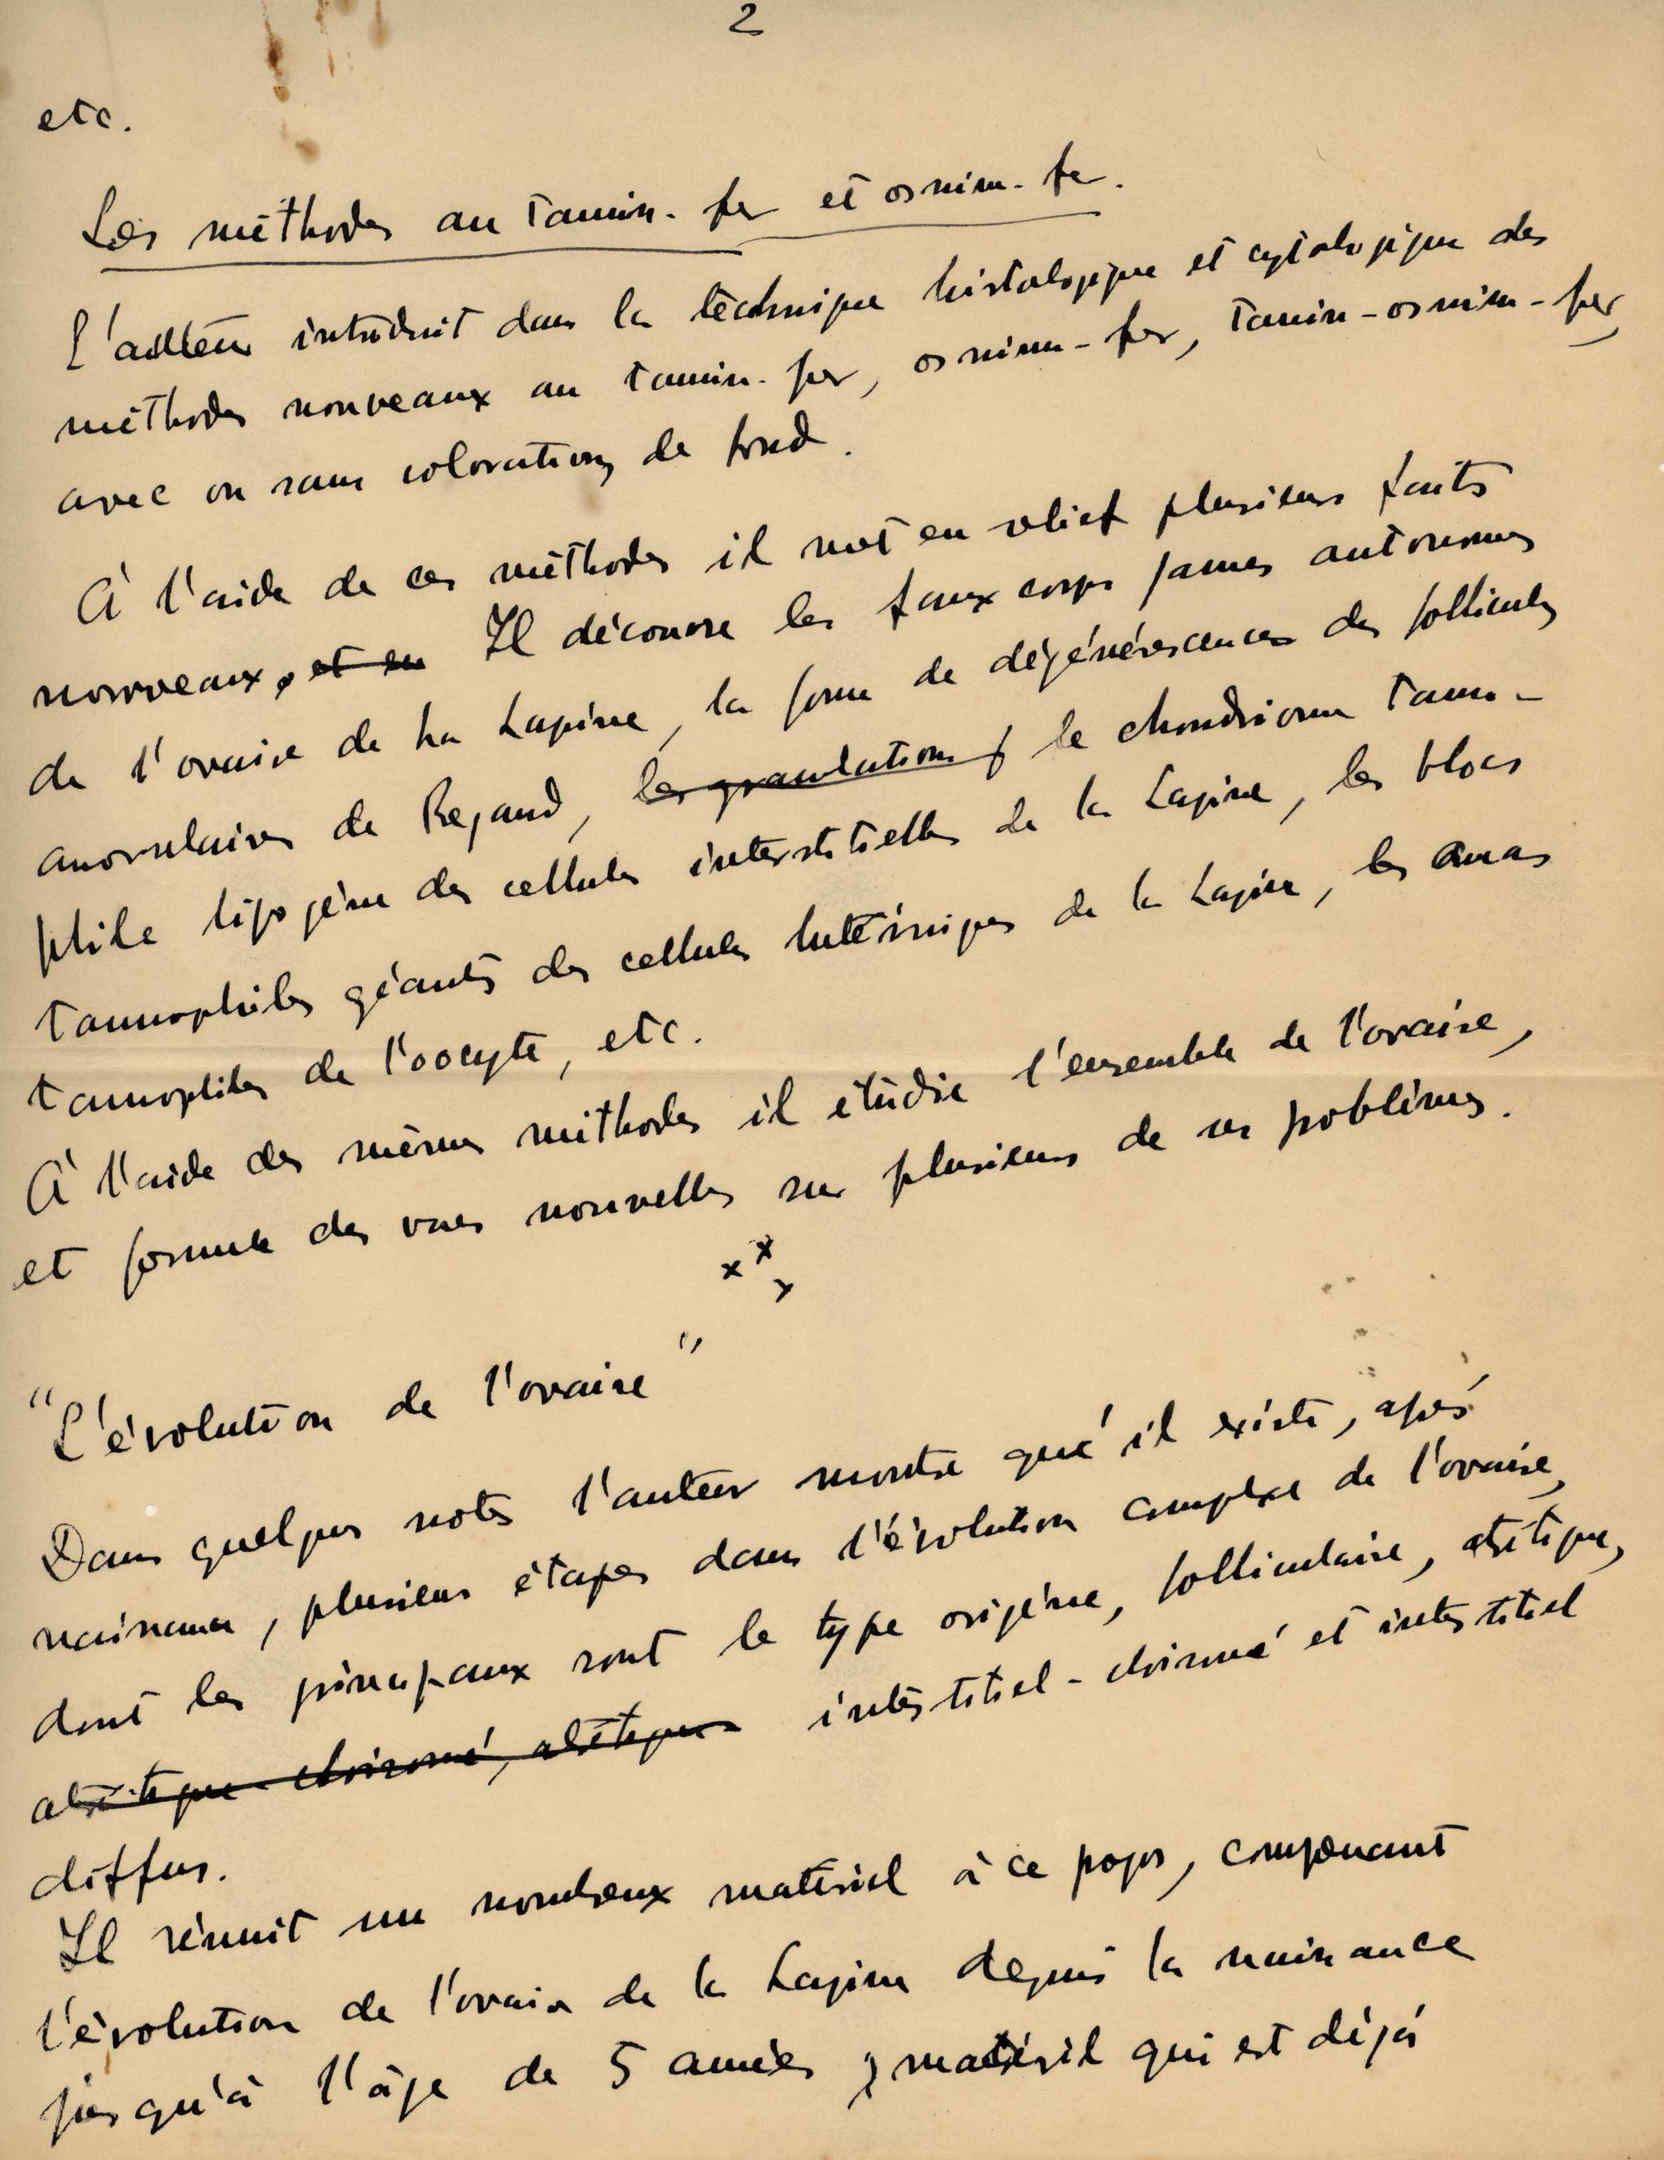 2
etc.
Les méthodes au tannin-fer et osmium-fer.
L'auteur introduit dans la technique histologique et cytologique des
méthodes nouveaux au tannin-fer, osmium-fer, tannin-osmium-fer,
avec ou sans colorations de fond.
À l'aide de ces méthodes il met en relief plusieurs faits
nouveaux, et en Il découvre les faux corps jaunes autonomes
de l'ovaire de la Lapine, la forme de dégénérescence des follicules
anovulaires de Regaud, les granulations le chondriome tanno-
phile lipogène des cellules interstitielles de la Lapine, les blocs
tannophiles géants des cellules lutéiniques de la Lapine, les amas
tannophiles de l'oocyte, etc.
À l'aide des mêmes méthodes il étudie l'ensemble de l'ovaire,
et formule des vues nouvelles sur plusieurs de ses poblèmes.
x x x
"L'évolution de l'ovaire"
Dans quelques notes l'auteur montre qu'il existe, après
naissance, plusieurs étapes dans l'évolution complexe de l'ovaire,
dont les principaux sont le type origène, folliculaire, atrétique,
atrétique cloisonné, atrétique interstitiel-cloisonné et interstitiel
diffus.
Il réunit un nombreux matériel à ce propos, comprenant
l'évolution de l'ovaire de la Lapine depuis la naissance
jusqu'à l'âge de 5 années, matériel qui est déjà